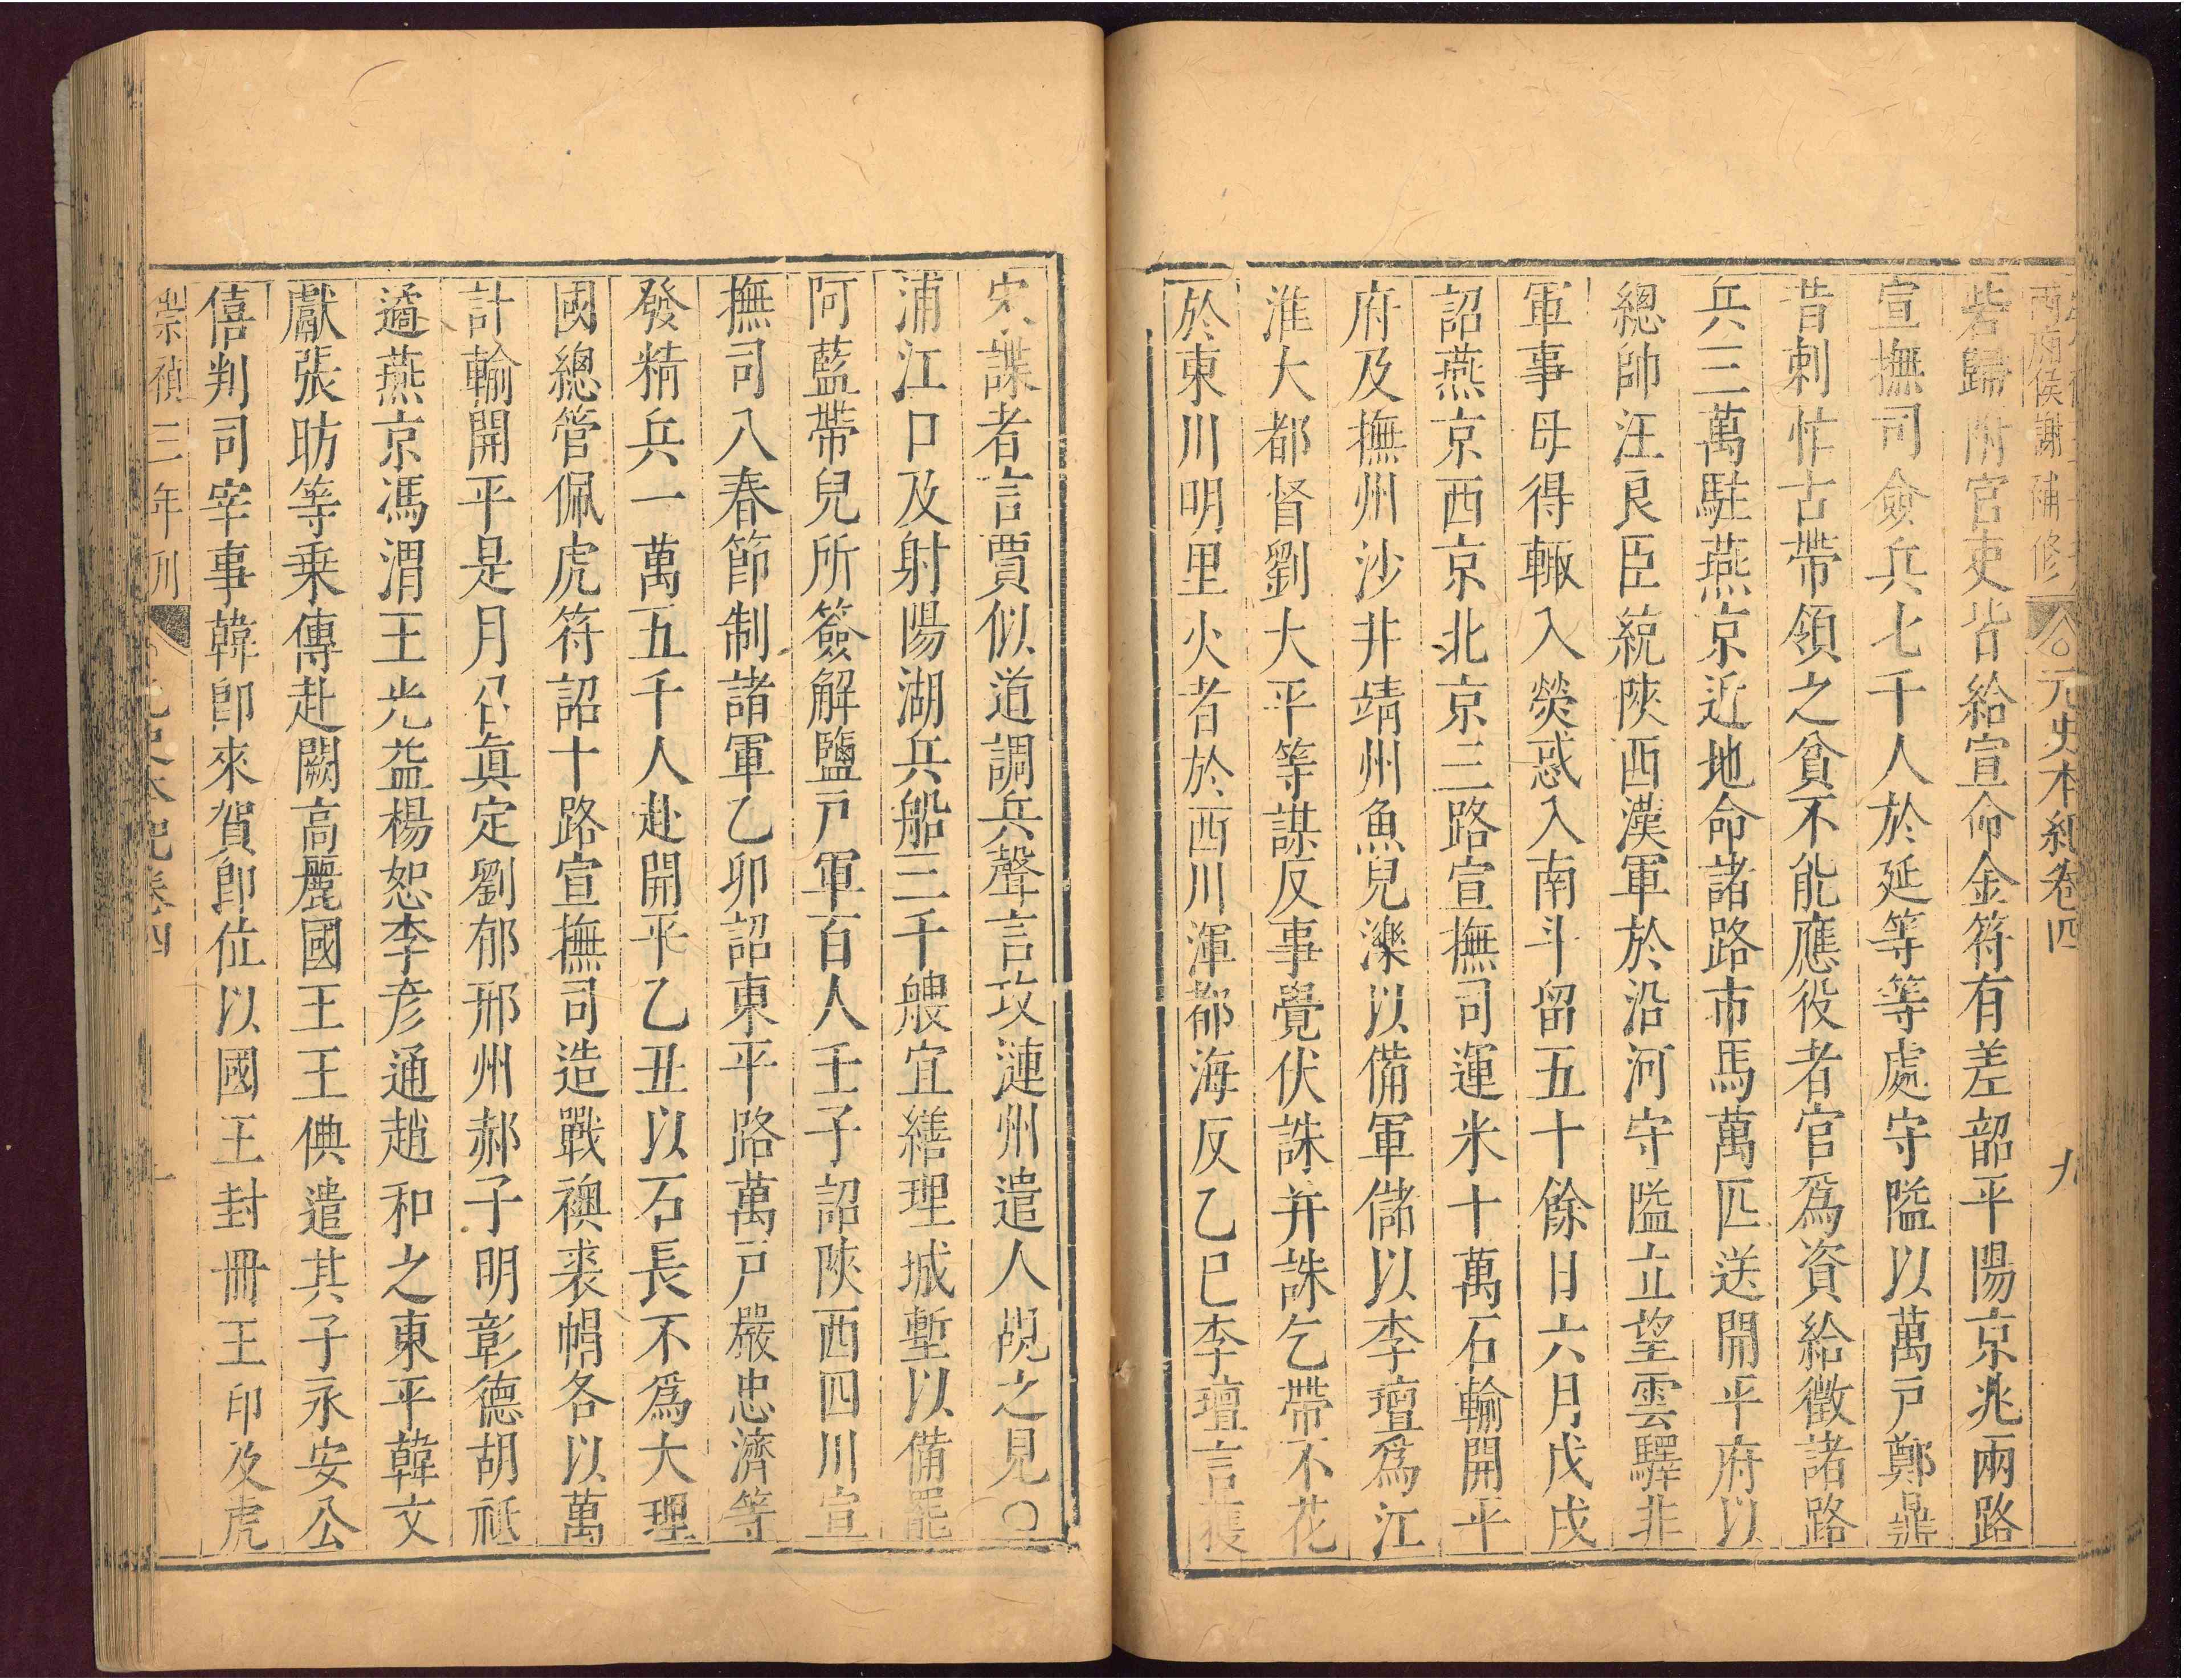 兩府侯謝補修 元史本紀卷四 九
砦歸附官吏皆給宣命金符有差詔平陽京兆兩路
宣撫司僉兵七千人於延等等處守隘以萬戶鄭鼎
昔剌忙古帶領之貧不能應役者官爲資給徵諸路
兵三萬駐燕京近地命諸路市馬萬匹送開平府以
總帥汪良臣統陝西漢軍於沿河守隘立望雲驛非
軍事毋得輙入熒惑入南斗留五十餘日六月戊戌
詔燕京西京北京三路宣撫司運米十萬石輸開平
府及撫州沙井靖州魚兒濼以備軍儲以李璮爲江
淮大都督劉大平等謀反事覺伏誅并誅乞帶不花
於東川明里火者於西川渾都海反乙巳李璮言獲
宋諜者言賈似道調兵聲言攻漣州遣人覘之見○
浦江口及射陽湖兵船三千艘宜繕理城塹以備罷
阿藍帶兒所簽解鹽戶軍百人壬子詔陝西四川宣
撫司八春節制諸軍乙卯詔東平路萬戶嚴忠濟等
發精兵一萬五千人赴開平乙丑以石長不爲大理
國總管佩虎符詔十路宣撫司造戰襖裘帽各以萬
計輸開平是月召眞定劉郁邢州郝子明彰德胡祗
遹燕京馮渭王光益楊恕李彦通趙和之東平韓文
獻張昉等乗傳赴闕高麗國王王倎遣其子永安公
僖判司宰事韓卽來賀卽位以國王封冊王印及虎
崇禎三年刊 元史本紀卷四 十